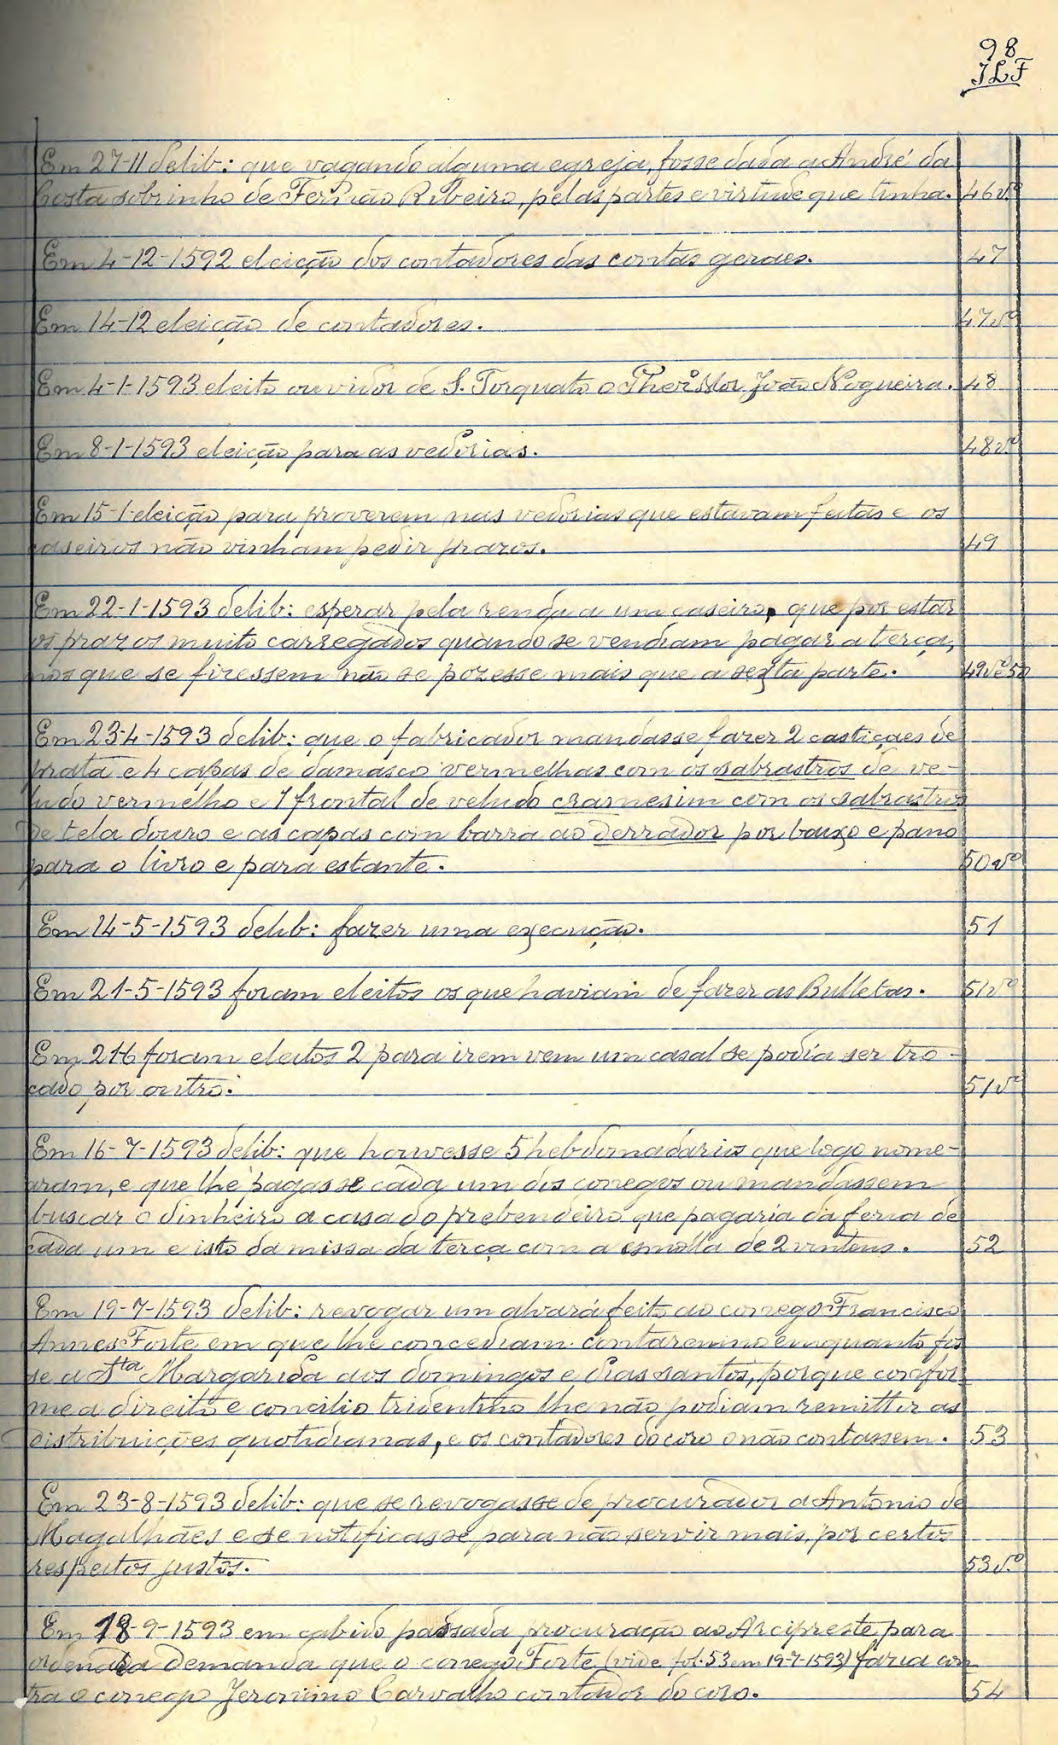 98
JLF
Em 27-11 delib: que vagando alguma egreja, fosse dada a André da
Costa sobrinho de Fernão Ribeiro, pelas partes e virtude que tinha. 46vº
Em 4-12-1592 eleição dos contadores das contas geraes. 47
Em 14-12 eleição de contadores. 47vº
Em 4-1-1593 eleito ouvidor de S. Torquato o Thesº Mor João Nogueira. 48
Em 8-1-1593 eleição para as vedorias. 48vº
Em 15-1-eleição para proverem nas vedorias que estavam feitas e os
caseiros não vinham pedir prazos. 49
Em 22-1-1593 delib: esperar pela renda a um caseiro, que por estar
os prazos muito carregados quando se vendiam pagar a terça,
nos que se fizessem não se pozesse mais que a sexta parte. 49vº e 50
Em 23-4-1593 delib: que o fabricador mandasse fazer 2 castiçaes de
prata e 4 capas de damasco vermelhas com os sabrastros de ve-
ludo vermelho e 1 frontal de veludo cramesim com os sabrastros
de tela douro e as capas com barra ao derrador por baixo e pano
para o livro e para estante. 50vº
Em 14-5-1593 delib: fazer uma execução. 51
Em 21-5-1593 foram eleitos os que haviam de fazer as Bulletas. 51vº
Em 21-6 foram eleitos 2 para irem vem um casal se podia ser tro-
cado por outro. 51vº
Em 16-7-1593 delib: que houvesse 5 hebdomadarios que logo nome-
aram, e que lhe pagasse cada um dos conegos ou mandassem
buscar o dinheiro a casa do prebendeiro que pagaria da feria de
cada um e isto da missa da terça com a esmolla de 2 vintens. 52
Em 19-7-1593 delib: revogar um alvará feito ao conego Francisco
Annes Forte em que lhe concediam contarem-no emquanto fos
se a Sta Margarida aos domingos e dias santos, porque confor-
me a direito e concilio tridentino lhe não podiam remittir as
distribuições quotidianas, e os contadores do coro o não contassem. 53
Em 23-8-1593 delib: que se revogasse de procurador a Antonio de
Magalhães e se notificasse para não servir mais, por certos
respeitos justos. 53vº
Em 18-9-1593 em cabido passada procuração ao Arcipreste para
demanda que o conego Forte (vide fol. 53 em 19-7-1593) fazia con
tra o conego Jeronimo Carvalho contador do coro. 54